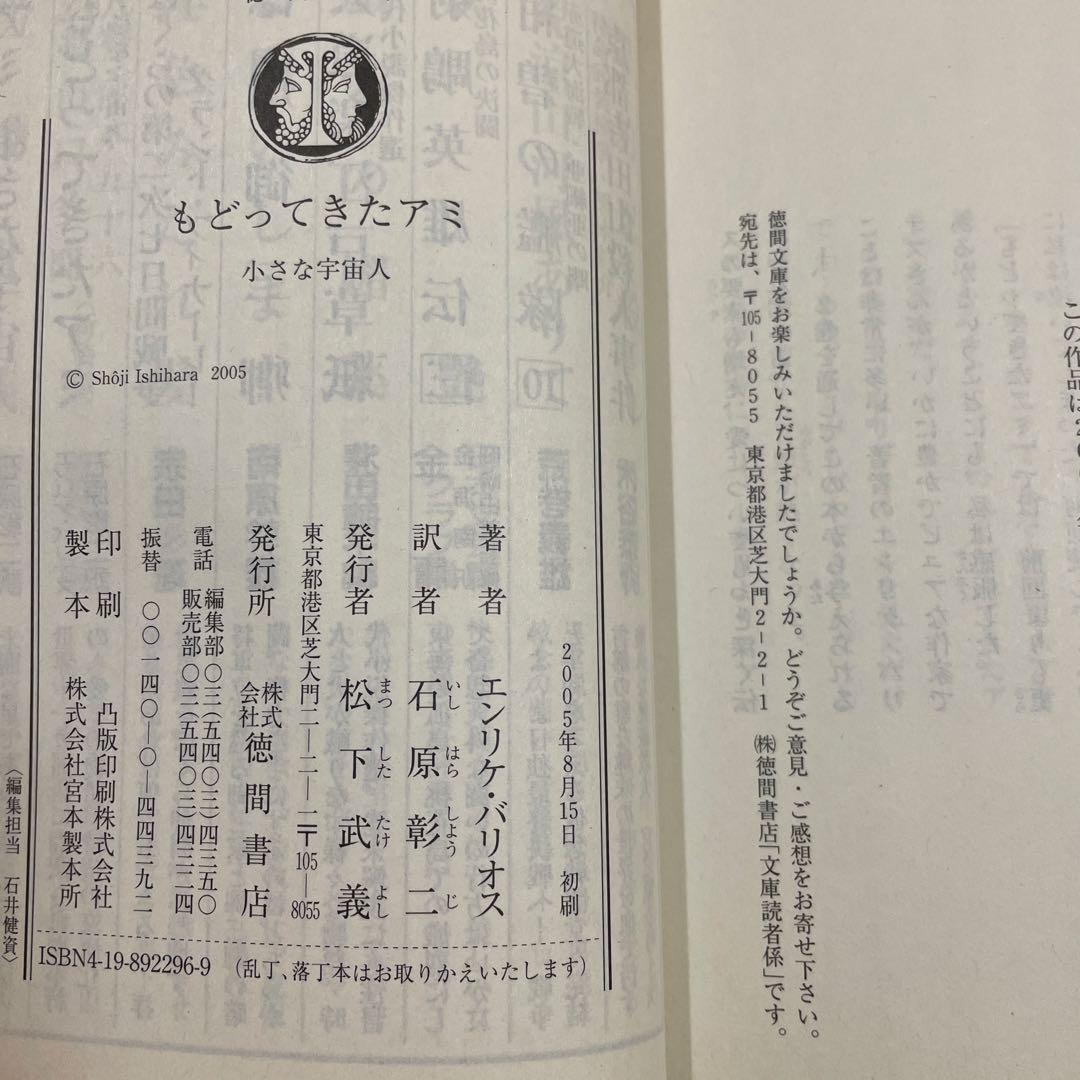 この作品は
徳間文庫をお楽しみいただけましたでしょうか。どうぞご意見・ご感想をお寄せ下さい。
宛先は、〒105-8055 東京都港区芝大門2-2-1 ㈱徳間書店「文庫読者係」です。
もどってきたアミ
小さな宇宙人
© Shôji Ishihara 2005
2005年8月15日 初刷
著者 エンリケ・バリオス
訳者 石原彰二
いし はら しよう じ
発行者 松下武義
まつ した たけ よし
東京都港区芝大門二―二―一〒105―8055
発行所 株式会社徳間書店
電話 編集部〇三(五四〇三)四三五〇
販売部〇三(五四〇三)四三二四
振替 〇〇一四〇―〇―四四三九二
印刷 凸版印刷株式会社
製本 株式会社宮本製本所
〈編集担当 石井健資〉
ISBN4-19-892296-9 (乱丁、落丁本はお取りかえいたします)